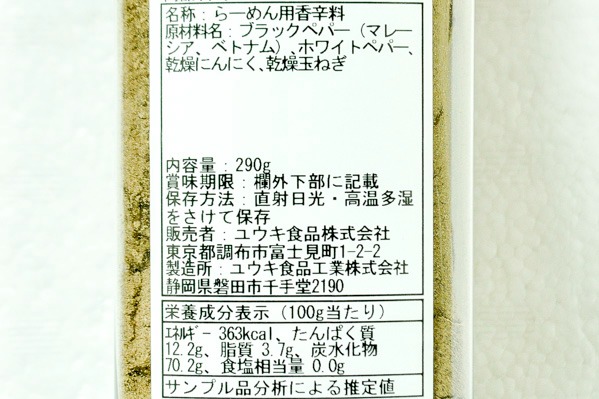 名称：らーめん用香辛料
原材料名：ブラックペパー（マレー
シア、ベトナム）、ホワイトペパー、
乾燥にんにく、乾燥玉ねぎ
内容量：290g
賞味期限：欄外下部に記載
保存方法：直射日光・高温多湿
をさけて保存
販売者：ユウキ食品株式会社
東京都調布市富士見町1-2-2
製造所：ユウキ食品工業株式会社
静岡県磐田市千手堂2190
栄養成分表示（100g当たり）
ｴﾈﾙｷﾞｰ 363kcal、たんぱく質
12.2g、脂質 3.7g、炭水化物
70.2g、食塩相当量 0.0g
サンプル品分析による推定値